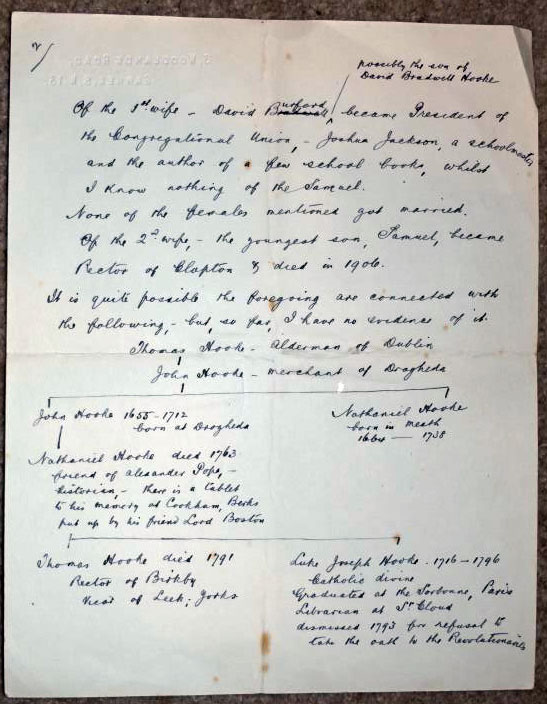 2/
possibly the son of
David Bradwell Hooke
Of the 1st wife - David Burford became President of
the Congregational Union, - Joshua Jackson, a schoolmaster
and the author of a few school books, whilst
I know nothing of the Samuel.
None of the females mentioned got married.
Of the 2nd wife, - the youngest son, Samuel, became
Rector of Clapton & died in 1906.
It is quite possible the foregoing are connected with
the following, - but, so far, I have no evidence of it.
Thomas Hooke - Alderman of Dublin
John Hooke - merchant of Drogheda
John Hooke 1655-1712
born at Drogheda
Nathaniel Hooke
born in Meath
1664 - 1738
Nathaniel Hooke died 1763
friend of Alexander Pope, -
historian, - there is a tablet
to his memory at Cookham, Berks
put up by his friend Lord Boston
Thomas Hooke died 1791
Rector of Birkby
Vicar of Leek, Yorks
Luke Joseph Hooke - 1716-1796
Catholic divine
Graduated at the Sorbonne, Paris
Librarian at St Cloud
dismissed 1793 for refusal to
take the oath to the Revolutionaries